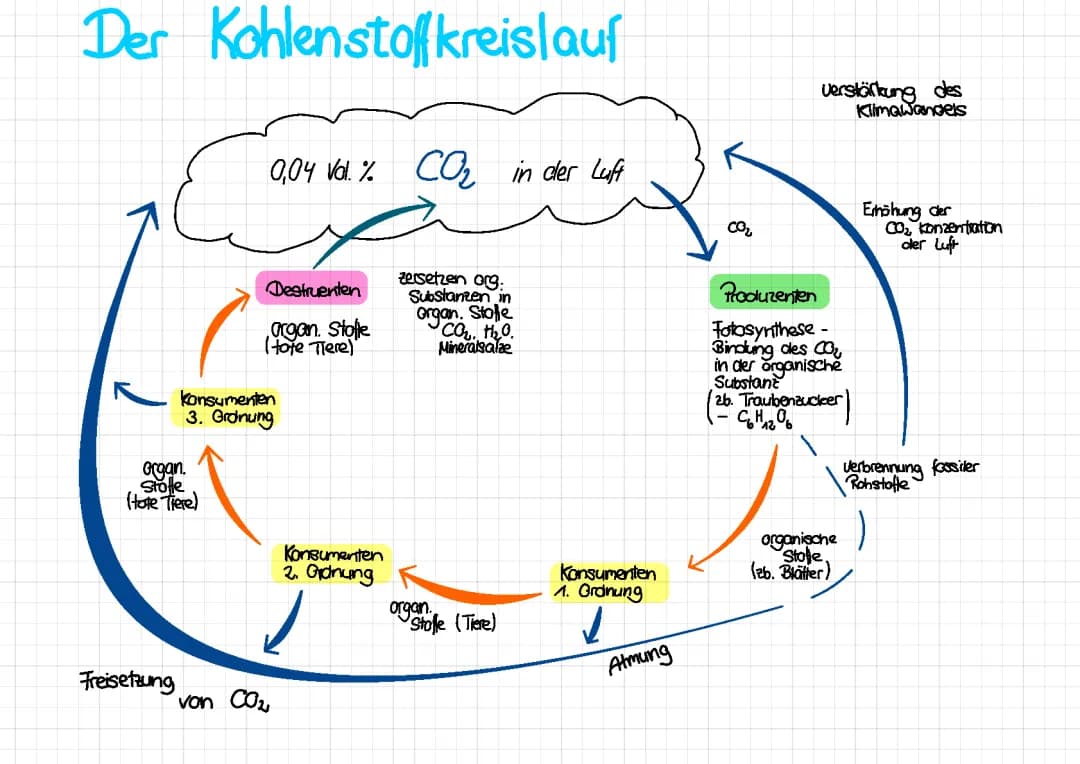 Der Kohlenstoffkreislauf
Verstärkung des
Klimawandels
0,04 Vol. % CO₂ in der Luft
CO₂
Erhöhung der
CO₂ Konzentration
der Luft
Destruenten
organ. Stoffe
(tote Tiere)
zersetzen org.
Substanzen in
organ. Stoffe
CO₂, H₂O,
Mineralsalze
Produzenten
Fotosynthese -
Bindung des CO₂
in der organische
Substanz
(zb. Traubenzucker)
- C₆H₁₂O₆
Konsumenten
3. Ordnung
organ.
Stoffe
(tote Tiere)
Verbrennung fossiler
Rohstoffe
organische
Stoffe
(zb. Blätter)
Konsumenten
2. Ordnung
Konsumenten
1. Ordnung
organ.
Stoffe (Tiere)
Atmung
Freisetzung
von CO₂